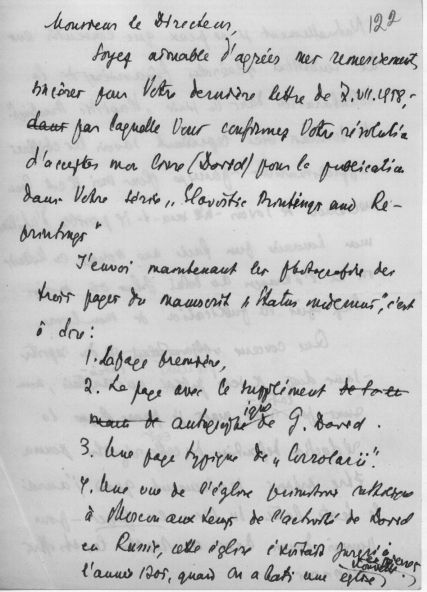 122
Monsieur le Directeur,
Soyez aimable d'agréer mes remerciements
sincères pour Votre dernière lettre de 7.VII.1958,
dans par laquelle Vous confirmez Votre résolution
d'accepter mon livre (David) pour la publication
dans Votre série „Slavistic Printings and Re-
printings"
J'envoi maintenant les photographies des
trois pages du manuscrit „Status modernus", c'est
à dire:
1. La page première,
2. Le page avec le supplément
autographe de G. David.
3. Une page typique de „Corrolarii".
4. Une vue de l'église primitive catholique
à Moscou aux temps de l'activité de David
en Russie, cette église existait jusqu'à
l'année 1705, quand on a bati une nouvelle église
en pierres